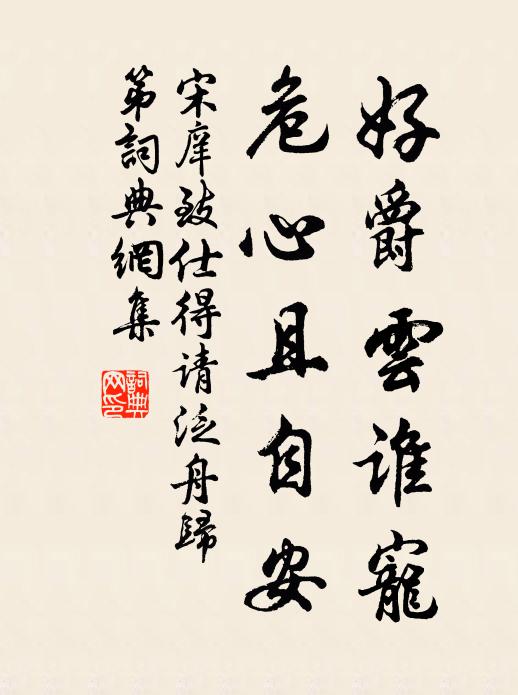 好爵雲誰寵
危心且自安
宋庠致仕得请泛舟歸
第詞典網集
詞典
网印